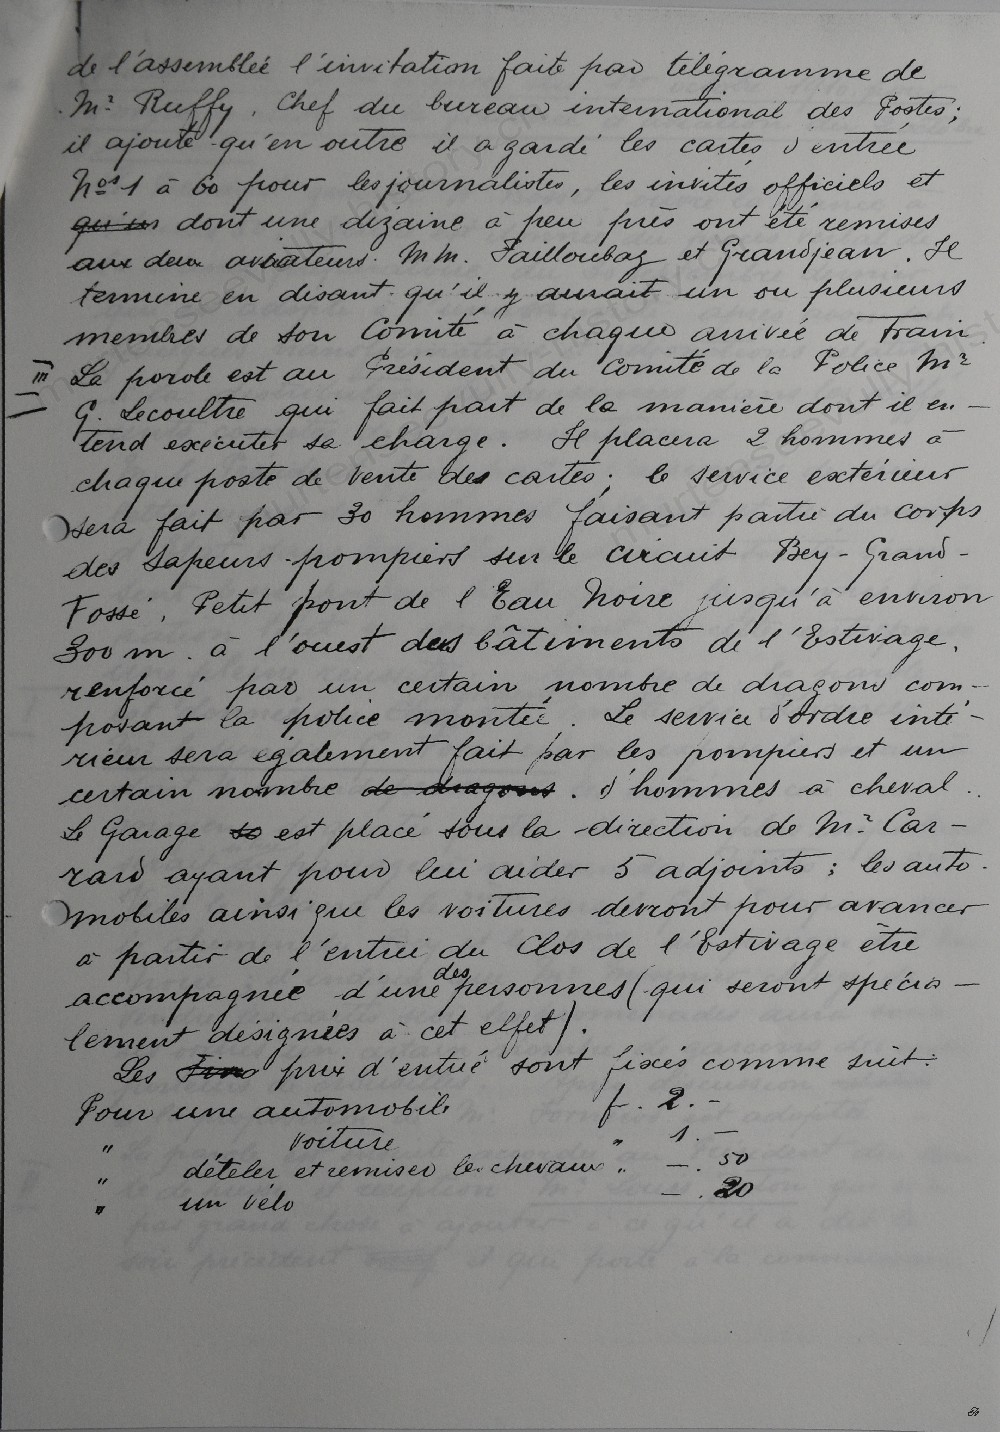 de l'assemblée l'invitation faite par télégramme de
Mr Ruffy, Chef du bureau international des Postes;
il ajoute qu'en outre il a gardé les cartes d'entrée
Nos 1 à 60 pour les journalistes, les invités officiels et
dont une dizaine à peu près ont été remises
aux deux aviateurs. MM. Failloubaz et Grandjean. Il
termine en disant qu'il y aurait un ou plusieurs
membres de son Comité à chaque arrivée de Train.
III La parole est au Président du Comité de la Police Mr
G. Lecoultre qui fait part de la manière dont il en-
tend exécuter sa charge. Il placera 2 hommes à
chaque poste de vente des cartes; le service extérieur
sera fait par 30 hommes faisant partie du corps
des Sapeurs-pompiers sur le circuit Bey-Grand-
Fossé, Petit pont de l'Eau Noire jusqu'à environ
300 m. à l'ouest des bâtiments de l'Estivage,
renforcé par un certain nombre de dragons com-
posant la police montée. Le service d'ordre inté-
rieur sera également fait par les pompiers et un
certain nombre de dragons. d'hommes à cheval.
Le Garage est placé sous la direction de Mr Car-
rard ayant pour lui aider 5 adjoints; les auto-
mobiles ainsi que les voitures devront pour avancer
à partir de l'entrée du Clos de l'Estivage être
des
accompagnée d'une personnes (qui seront spécia-
lement désignées à cet effet).
Les prix d'entrée sont fixés comme suit:
Pour une automobile f. 2.-
" voiture " 1.-
" dételer et remiser les chevaux " -.50
" un vélo -.20